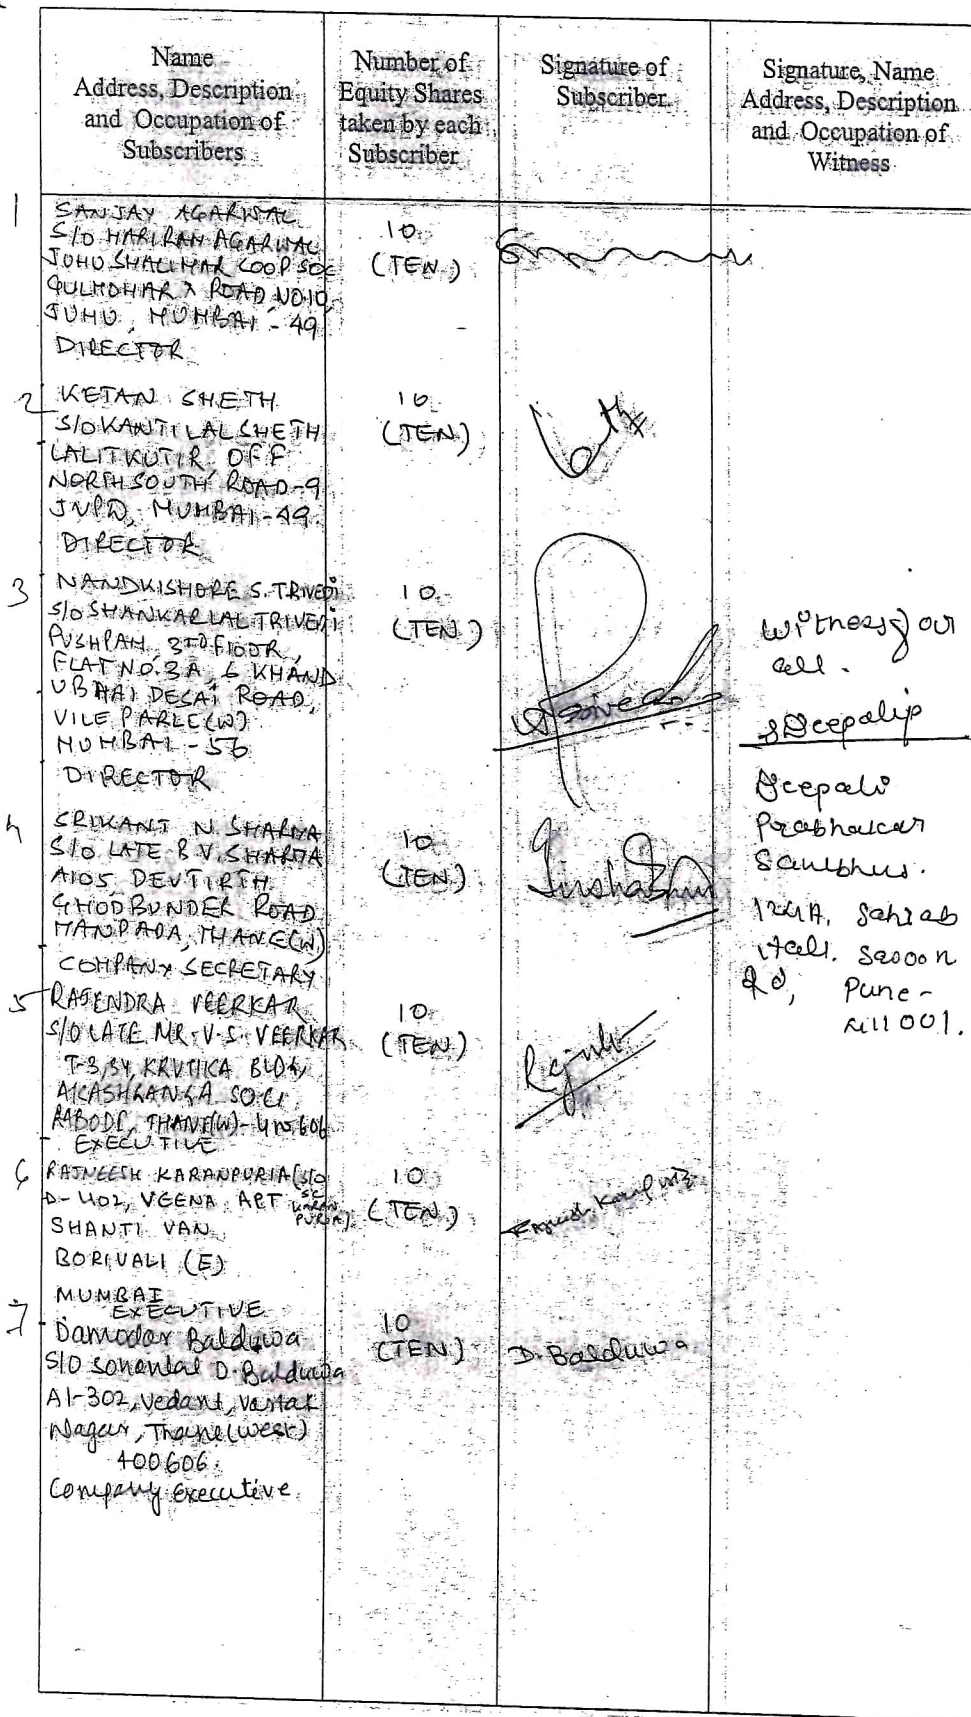 Name
Address, Description
and Occupation of
Subscribers
Number of
Equity Shares
taken by each
Subscriber
Signature of
Subscriber
Signature, Name
Address, Description
and Occupation of
Witness
1
SANJAY AGARWAL
S/O HARIRAM AGARWAL
JUHU SHALIMAR COOP SOC
GULMOHAR X ROAD NO 10,
JUHU, MUMBAI - 49
DIRECTOR
10
(TEN)
2
KETAN SHETH
S/O KANTILAL SHETH
LALITKUTIR OFF
NORTH SOUTH ROAD-9
JVPD, MUMBAI-49.
DIRECTOR
10
(TEN)
3
NANDKISHORE S. TRIVEDI
S/O SHANKARLAL TRIVEDI
PUSHPAM, 3RD FLOOR,
FLAT NO. 3A, 6 KHAND
UBHAI DESAI ROAD,
VILE PARLE(W)
MUMBAI - 56
DIRECTOR
10
(TEN)
4
SRIKANT N. SHARMA
S/O LATE B.V. SHARMA
A105, DEVTIRTH
GHODBUNDER ROAD
MANPADA, THANE(W)
COMPANY SECRETARY
10
(TEN)
5
RAJENDRA VEERKAR
S/O LATE MR. V.S. VEERKAR
T-3, 34, KRUTIKA BLDG,
AKASHGANGA SOC
RABODI, THANE(W)-400606
EXECUTIVE
10
(TEN)
6
RAJNEESH KARANPURIA (S/O
S.C. KARANPURIA)
D-402, VEENA APT
SHANTI VAN
BORIVALI (E)
MUMBAI
EXECUTIVE
10
(TEN)
7
Damodar Balduwa
S/O Sohanlal D. Balduwa
A1-302, Vedant, Vartak
Nagar, Thane (West)
400606.
Company Executive
10
(TEN)
D. Balduwa
Witness of our
all.
Deepalip
Deepali
Prabhakar
124A, Sohrab
Hall. Sasoon
Rd, Pune-
411001.